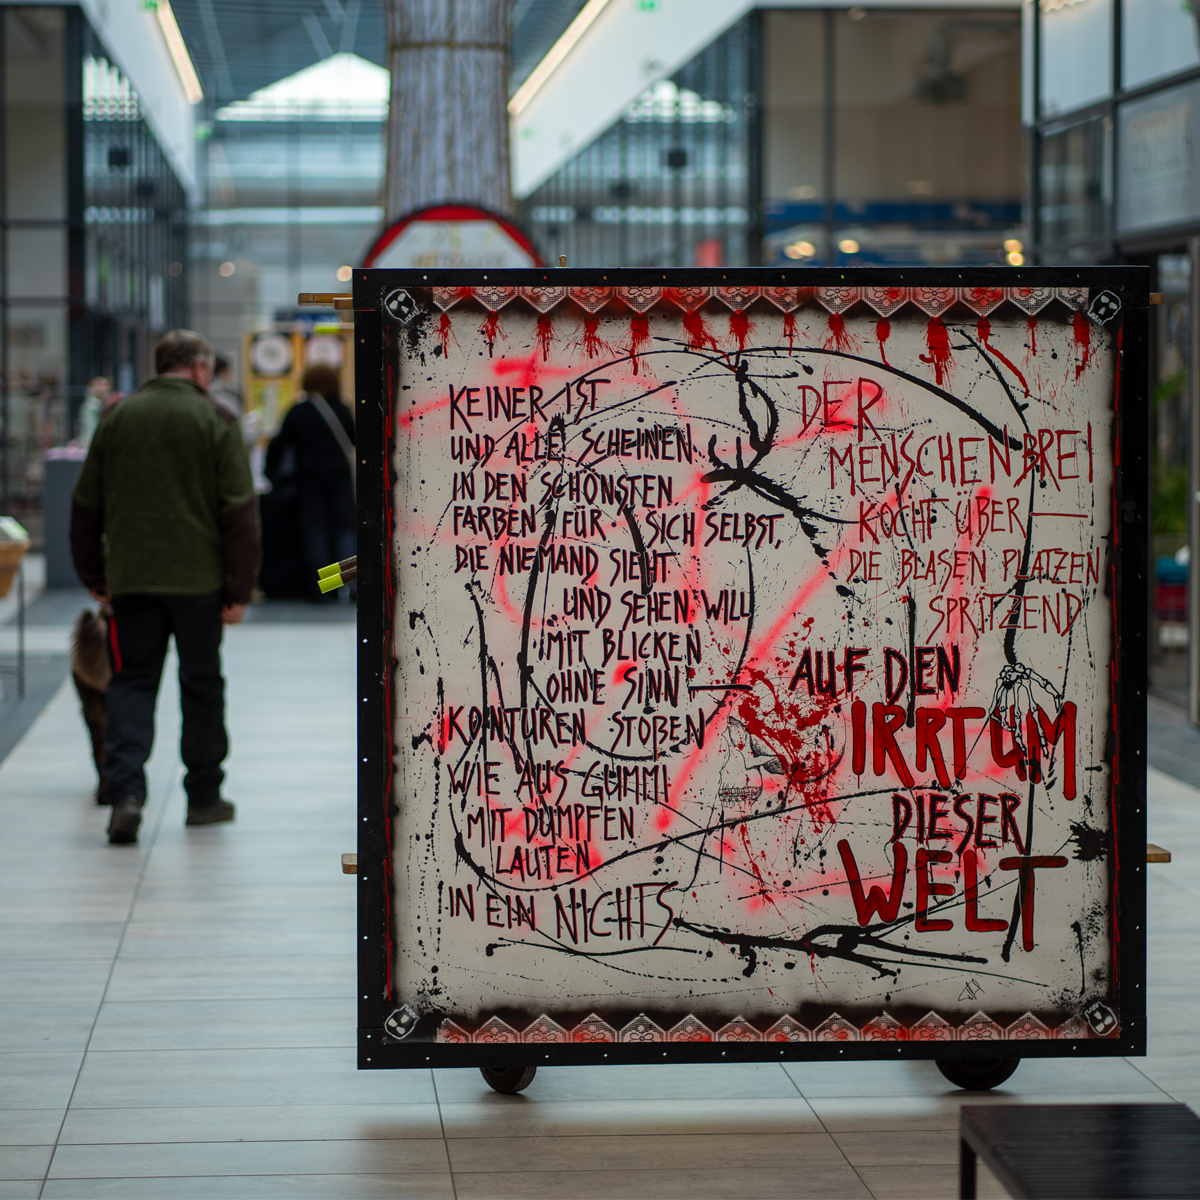 KEINER IST
UND ALLE SCHEINEN
IN DEN SCHÖNSTEN
FARBEN FÜR SICH SELBST,
DIE NIEMAND SIEHT
UND SEHEN WILL
MIT BLICKEN
OHNE SINN —
KONTUREN STOßEN
WIE AUS GUMMI
MIT DUMPFEN
LAUTEN
IN EIN NICHTS
DER
MENSCHENBREI
KOCHT ÜBER —
DIE BLASEN PLATZEN
SPRITZEND
AUF DEN
IRRTUM
DIESER
WELT